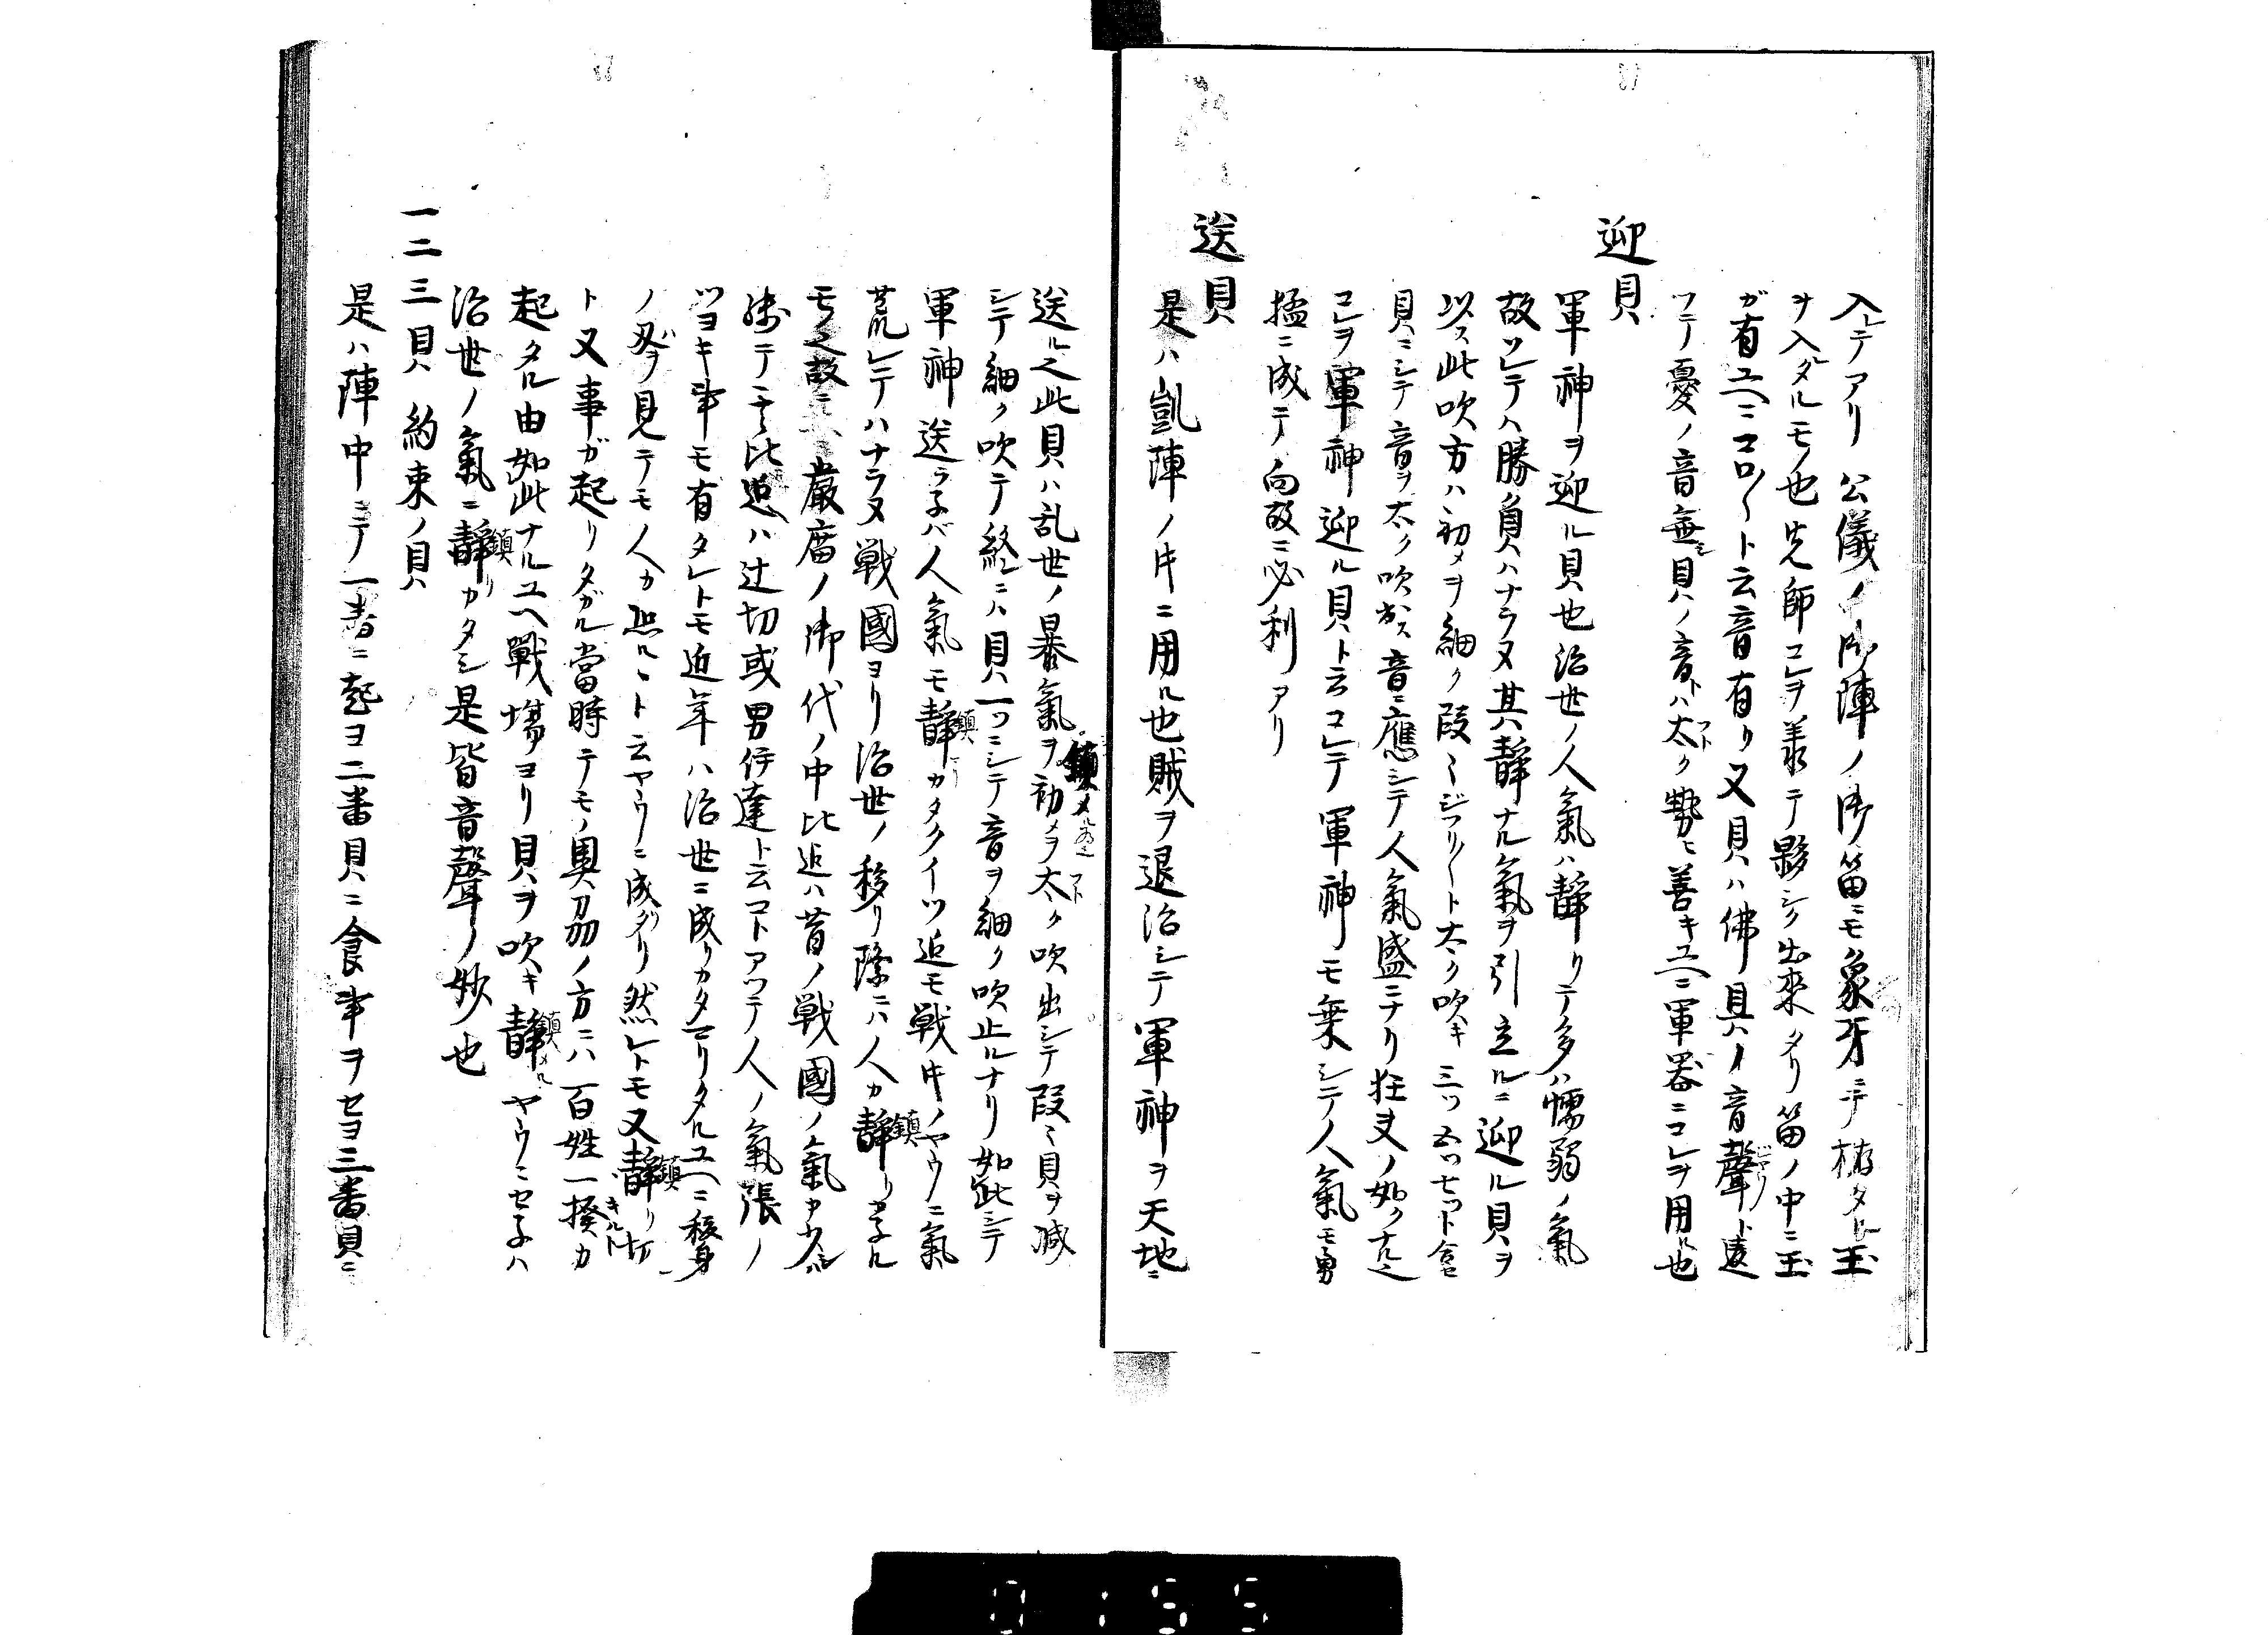 入レテアリ公儀ノ御陣ノ御笛ニモ象牙ニテ拵タル玉
ヲ入レタルモノ也先師コレヲ羨テ夥シク出来タリ笛ノ中ニ玉
ガ有ユヘニコロ〱ト云音有リ又貝ハ佛具ノ音聲ト違
フテ憂ノ音無シ貝ノ音ハ太ク勢ヒ善キユヘニ軍器ニコレヲ用ル也
迎貝
軍神ヲ迎ル貝也治世ノ人氣ハ靜リテ多ハ懦弱ノ氣
故ソレテハ勝負ハナラヌ其靜ナル氣ヲ引立ルニ迎ル貝ヲ
以ス此吹方ハ初メヲ細ク段〱ジフリ〱ト太ク吹キ三ツ五ツ七ツト
貝ニシテ音ヲ太ク吹出ス音ニ應シテ人氣盛ニナリ狂ノ如クナル也
コレヲ軍神迎ル貝ト云コレテ軍神モ乗シテ人氣モ勇
猛ニ成テ向故ニ必利アリ
送貝
是ハ凱陣ノ片ニ用ル也賊ヲ退治シテ軍神ヲ天地ニ
送ル之此貝ハ乱世ノ暴氣ヲ鎮メ初メヲ太ク吹出シテ段〻貝ヲ減
シテ細ク吹テ終ニハ貝一ツニシテ音ヲ細ク吹止ルナリ如此シテ
軍神送ラ子バ人氣モ靜カタクイツ迄モ戦片ノヤウニ氣
荒レテハナラヌ戦國ヨリ治世ノ移リ際ニハ人カ靜リカ子ル
モ之故ニ嚴庿ノ御代ノ中比迄ハ昔ノ戦國ノ氣カ少シ
残テ比迄ハ辻切或男伊達ト云コトアツテ人ノ氣張ノ
ツヨキ事モ有タレトモ近年ハ治世ニ成リカタマリタルユヘニ
ノヲ見テモ人カ恐ルヽト云ヤウニ成タリ然レトモ又靜リ
ト又事ガ起リタガル當時テモノ奥刕ノ方ニハ百姓一揆カ
起タル由如此ナルユヘ戰塲ヨリ貝ヲ吹キ靜ヤウニセ子ハ
治世ノ氣ニ靜カタシ是皆音聲ノ妙也
一二三貝約束ノ貝
是ハ陣中ニテ一番ニ起ヨ二番貝ニ食事ヲセヨ三番貝ニ